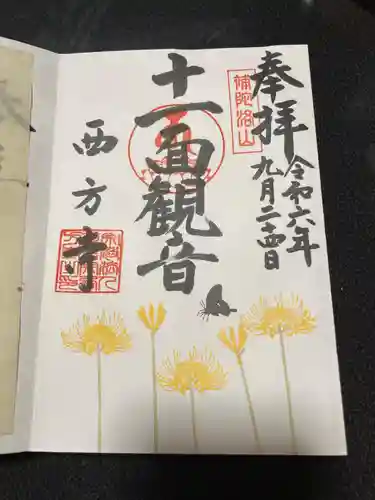 奉拝
令和六年
九月二十四日
補陀洛山
十一面観音
西方寺